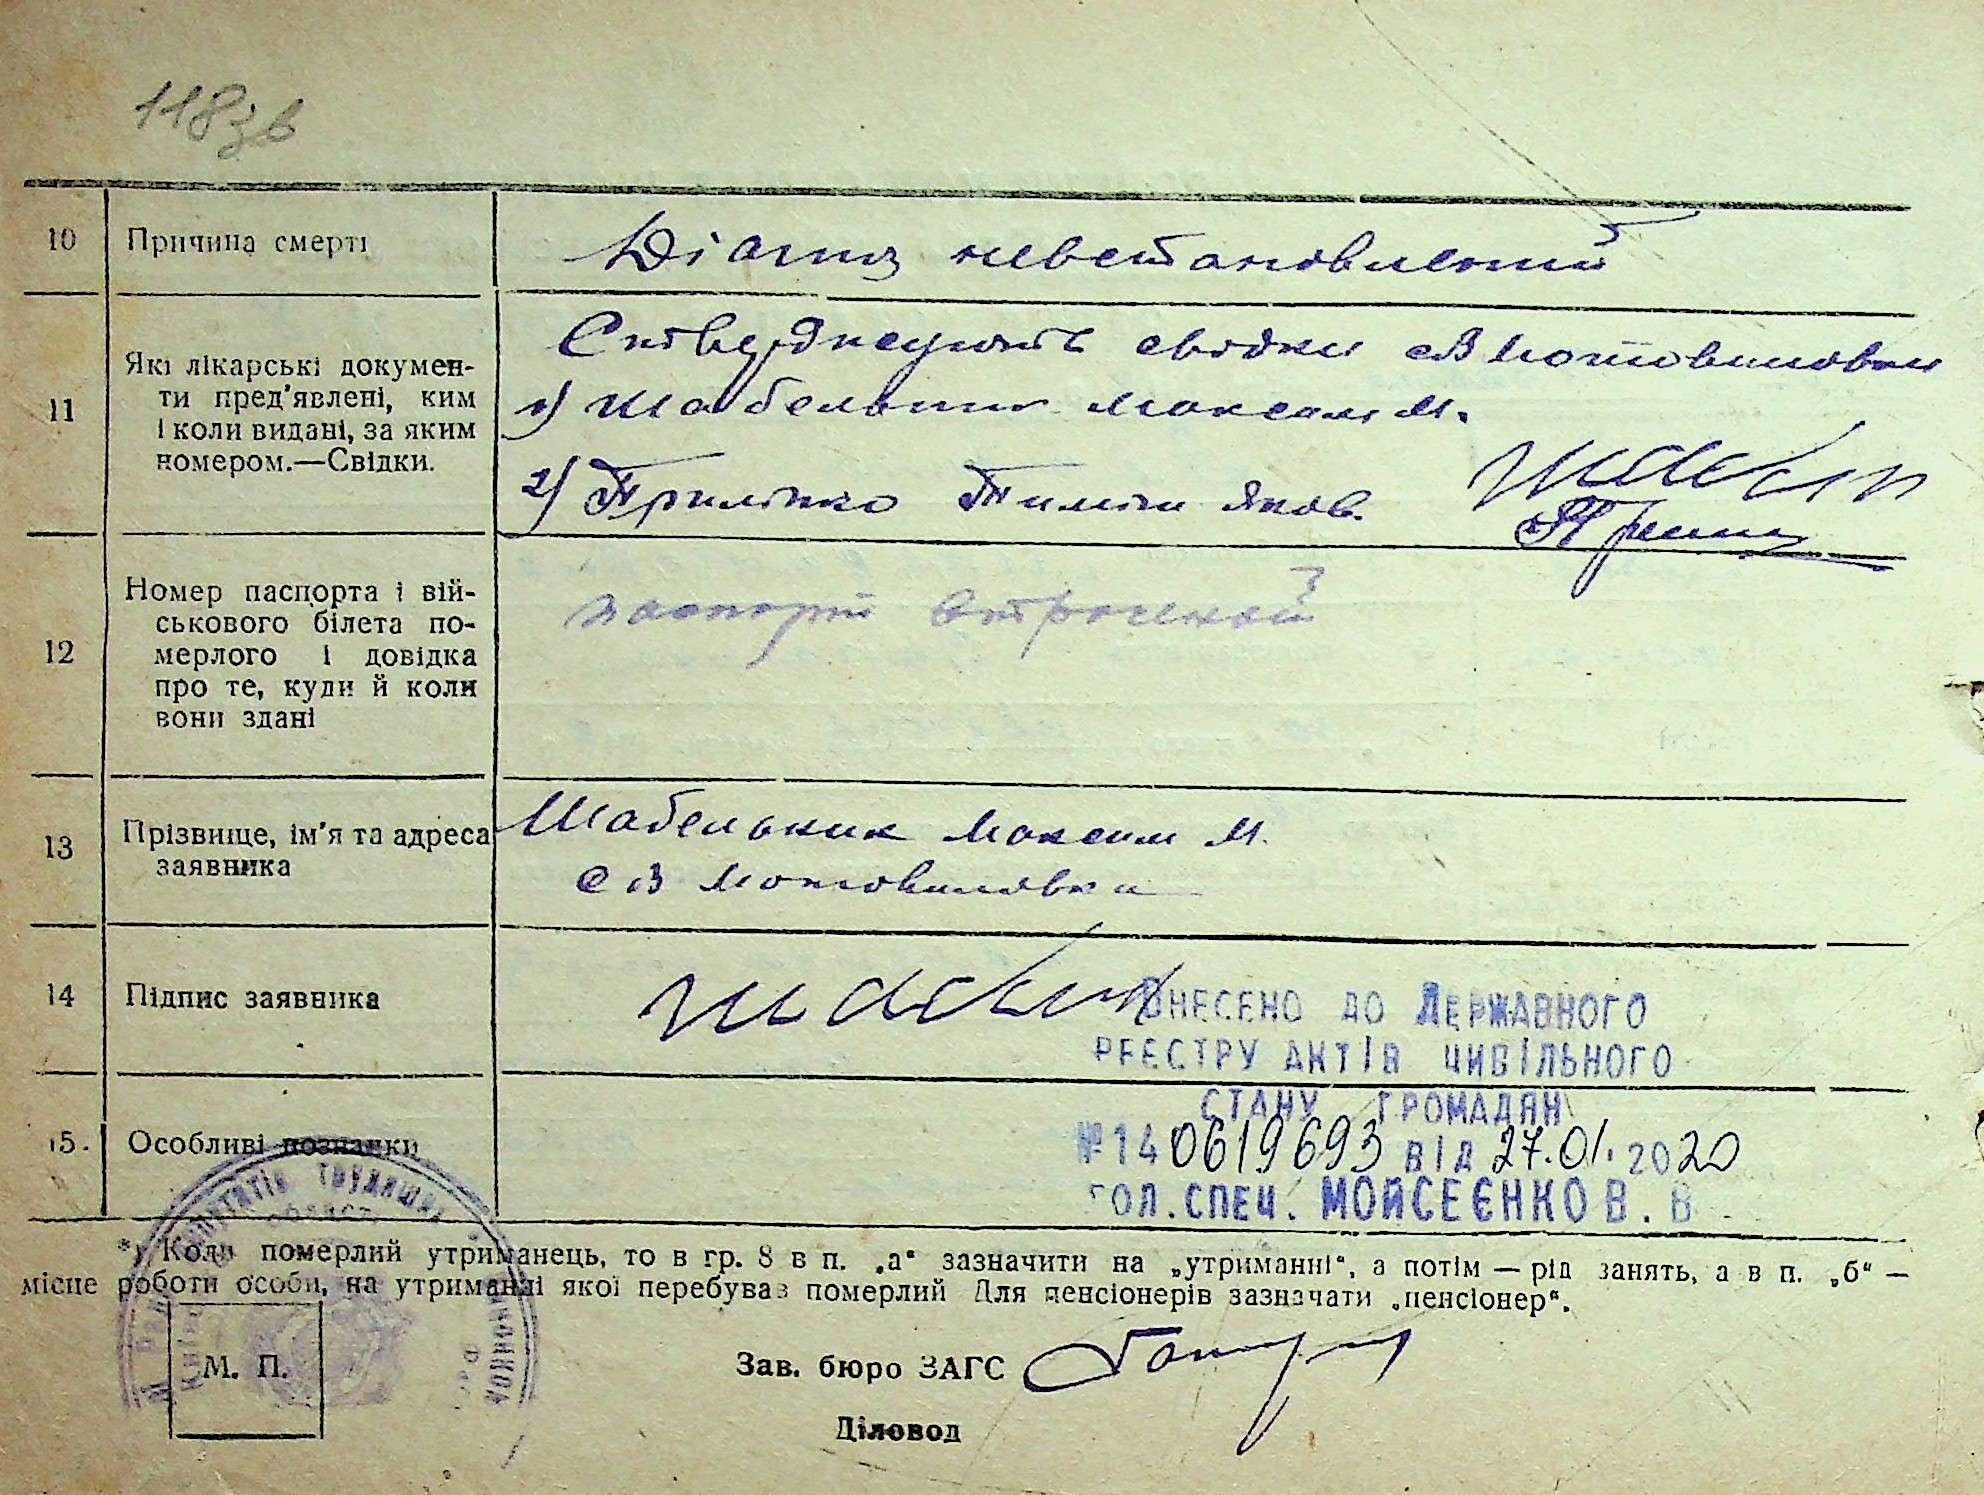 118зв
10 Причина смерті Діагноз невстановлений
11 Які лікарські докумен-
ти пред'явлені, ким
і коли видані, за яким
номером.—Свідки.
Стверджують свідки с В Мотовиловки
1) Шабельник Максим М.
2) Приліпко Тиміш Яков.
12 Номер паспорта і вій-
ськового білета по-
мерлого і довідка
про те, куди й коли
вони здані
паспорт втрачений
13 Прізвище, ім'я та адреса
заявника
Шабельник Максим М.
с В Мотовиловка
14 Підпис заявника
ВНЕСЕНО ДО ДЕРЖАВНОГО
РЕЄСТРУ АКТІВ ЦИВІЛЬНОГО
СТАНУ ГРОМАДЯН
15. Особливі познанки
№ 140619693 від 27.01.2020
ГОЛ. СПЕЦ. МОЙСЕЄНКО В. В
*) Коли померлий утриманець, то в гр. 8 в п. „а“ зазначити на „утриманні“, а потім — рід занять, а в п. „б“ —
місце роботи особи, на утриманні якої перебував померлий Для пенсіонерів зазначати „пенсіонер“.
М. П.
Зав. бюро ЗАГС
Діловод